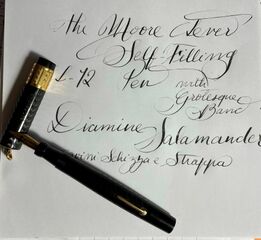 The Moore Lever
Self-Filling
L-72 Pen with
Grotesque
Band
Diamine Salamander
Schizza e Strappa